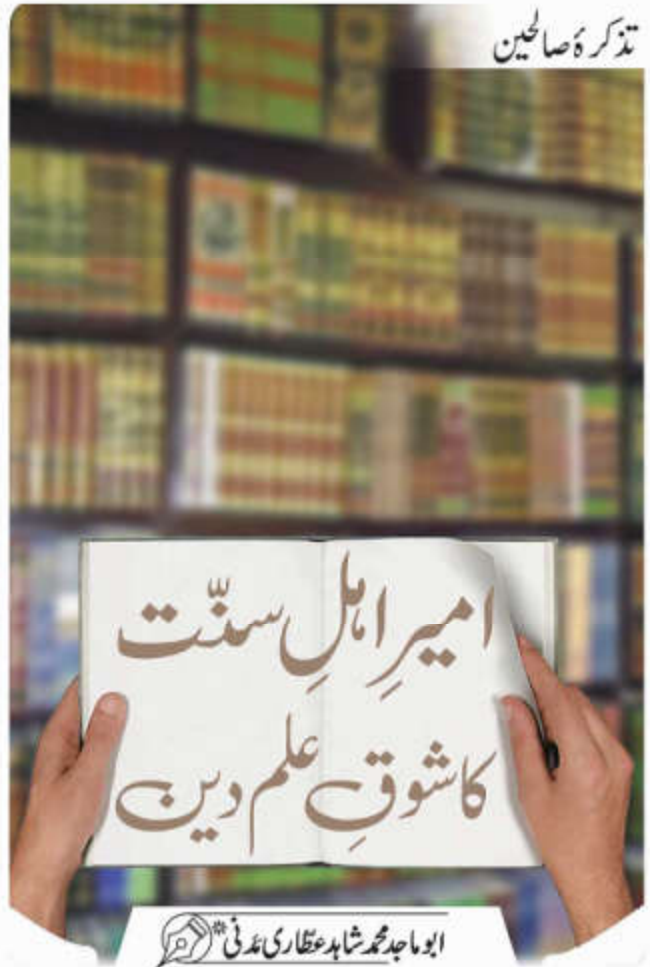 تذکرۂ صالحین
امیرِ اہلِ سنّت
کا شوقِ علمِ دین
ابو ماجد محمد شاہد عطّاری مَدَنی*